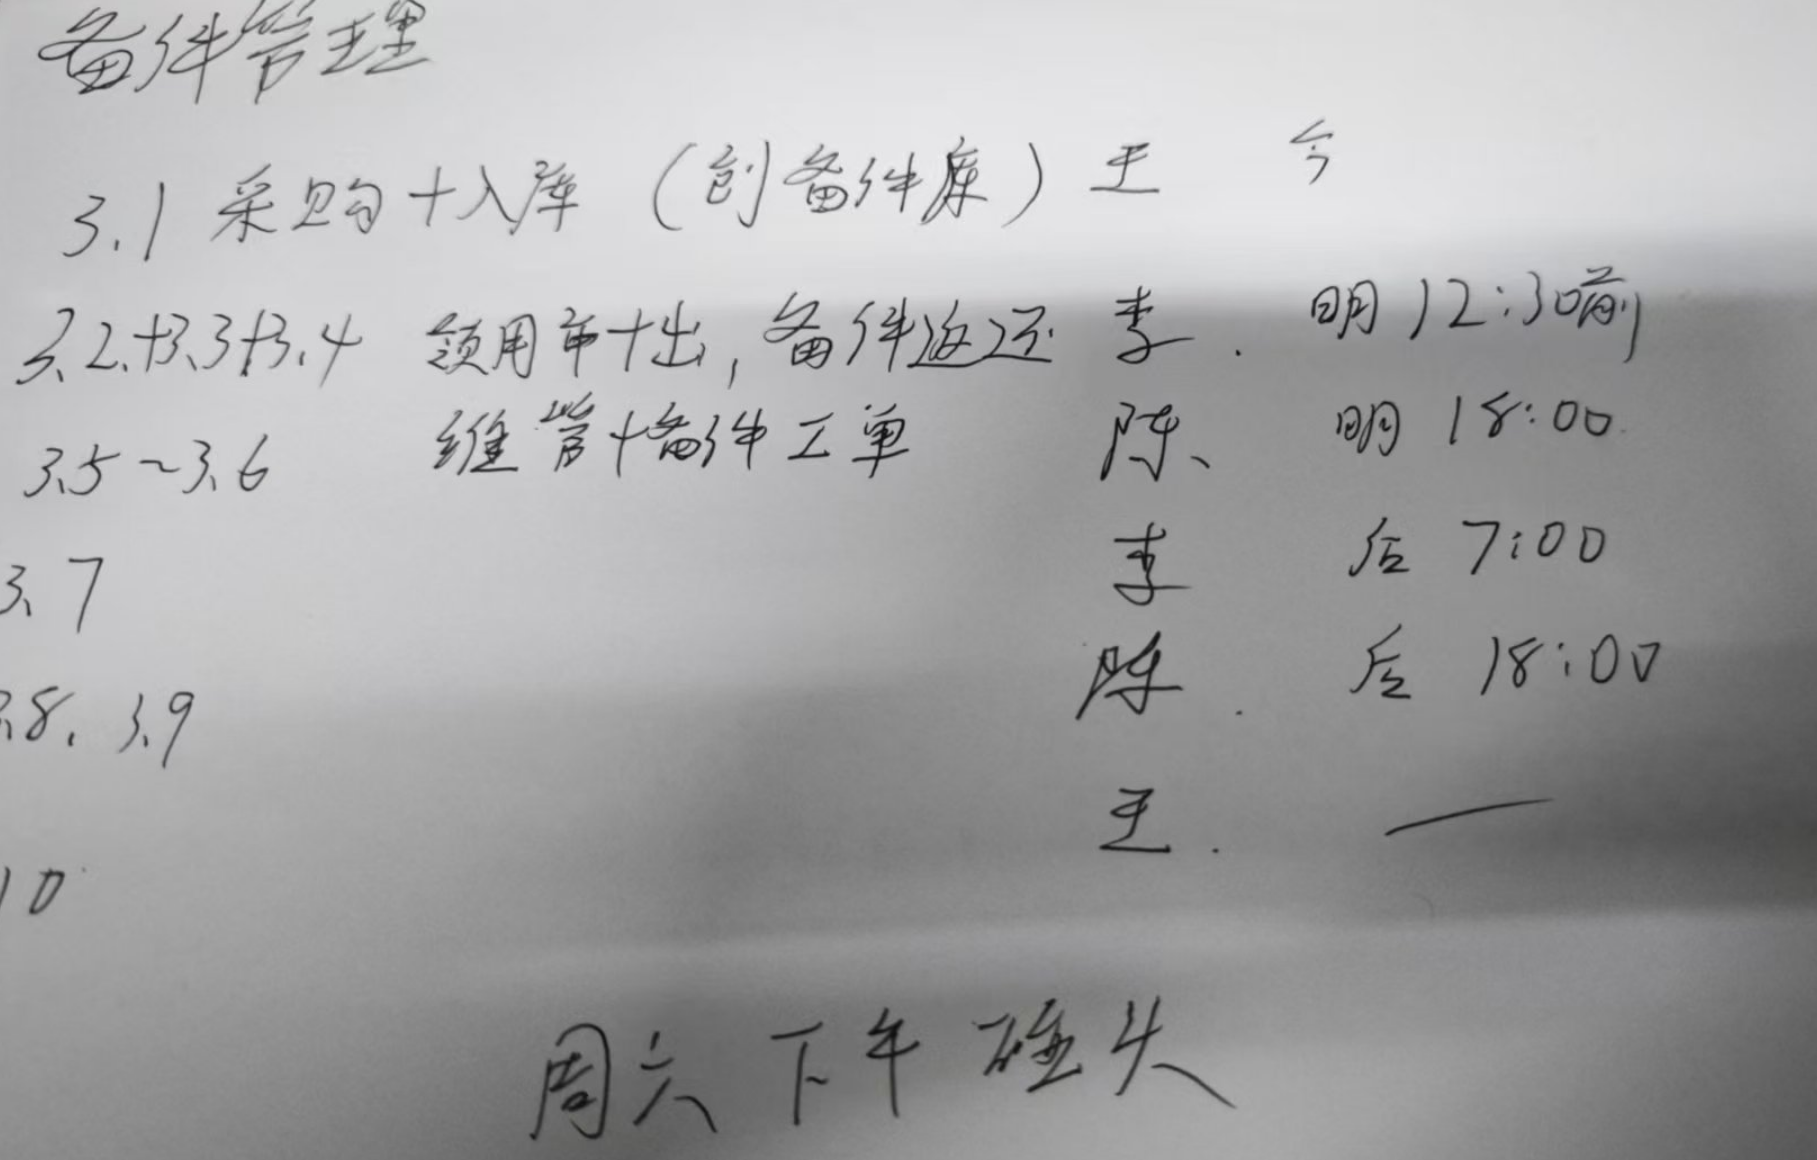 备件管理
3.1 采购+入库（创备件库）王 今
3.2+3.3+3.4 领用审+出，备件返还 李. 明12:30前
3.5~3.6 维管+备件工单 陈、 明 18:00
3.7 李 后 7:00
3.8、3.9 陈. 后 18:00
10 王. —
周六下午碰头